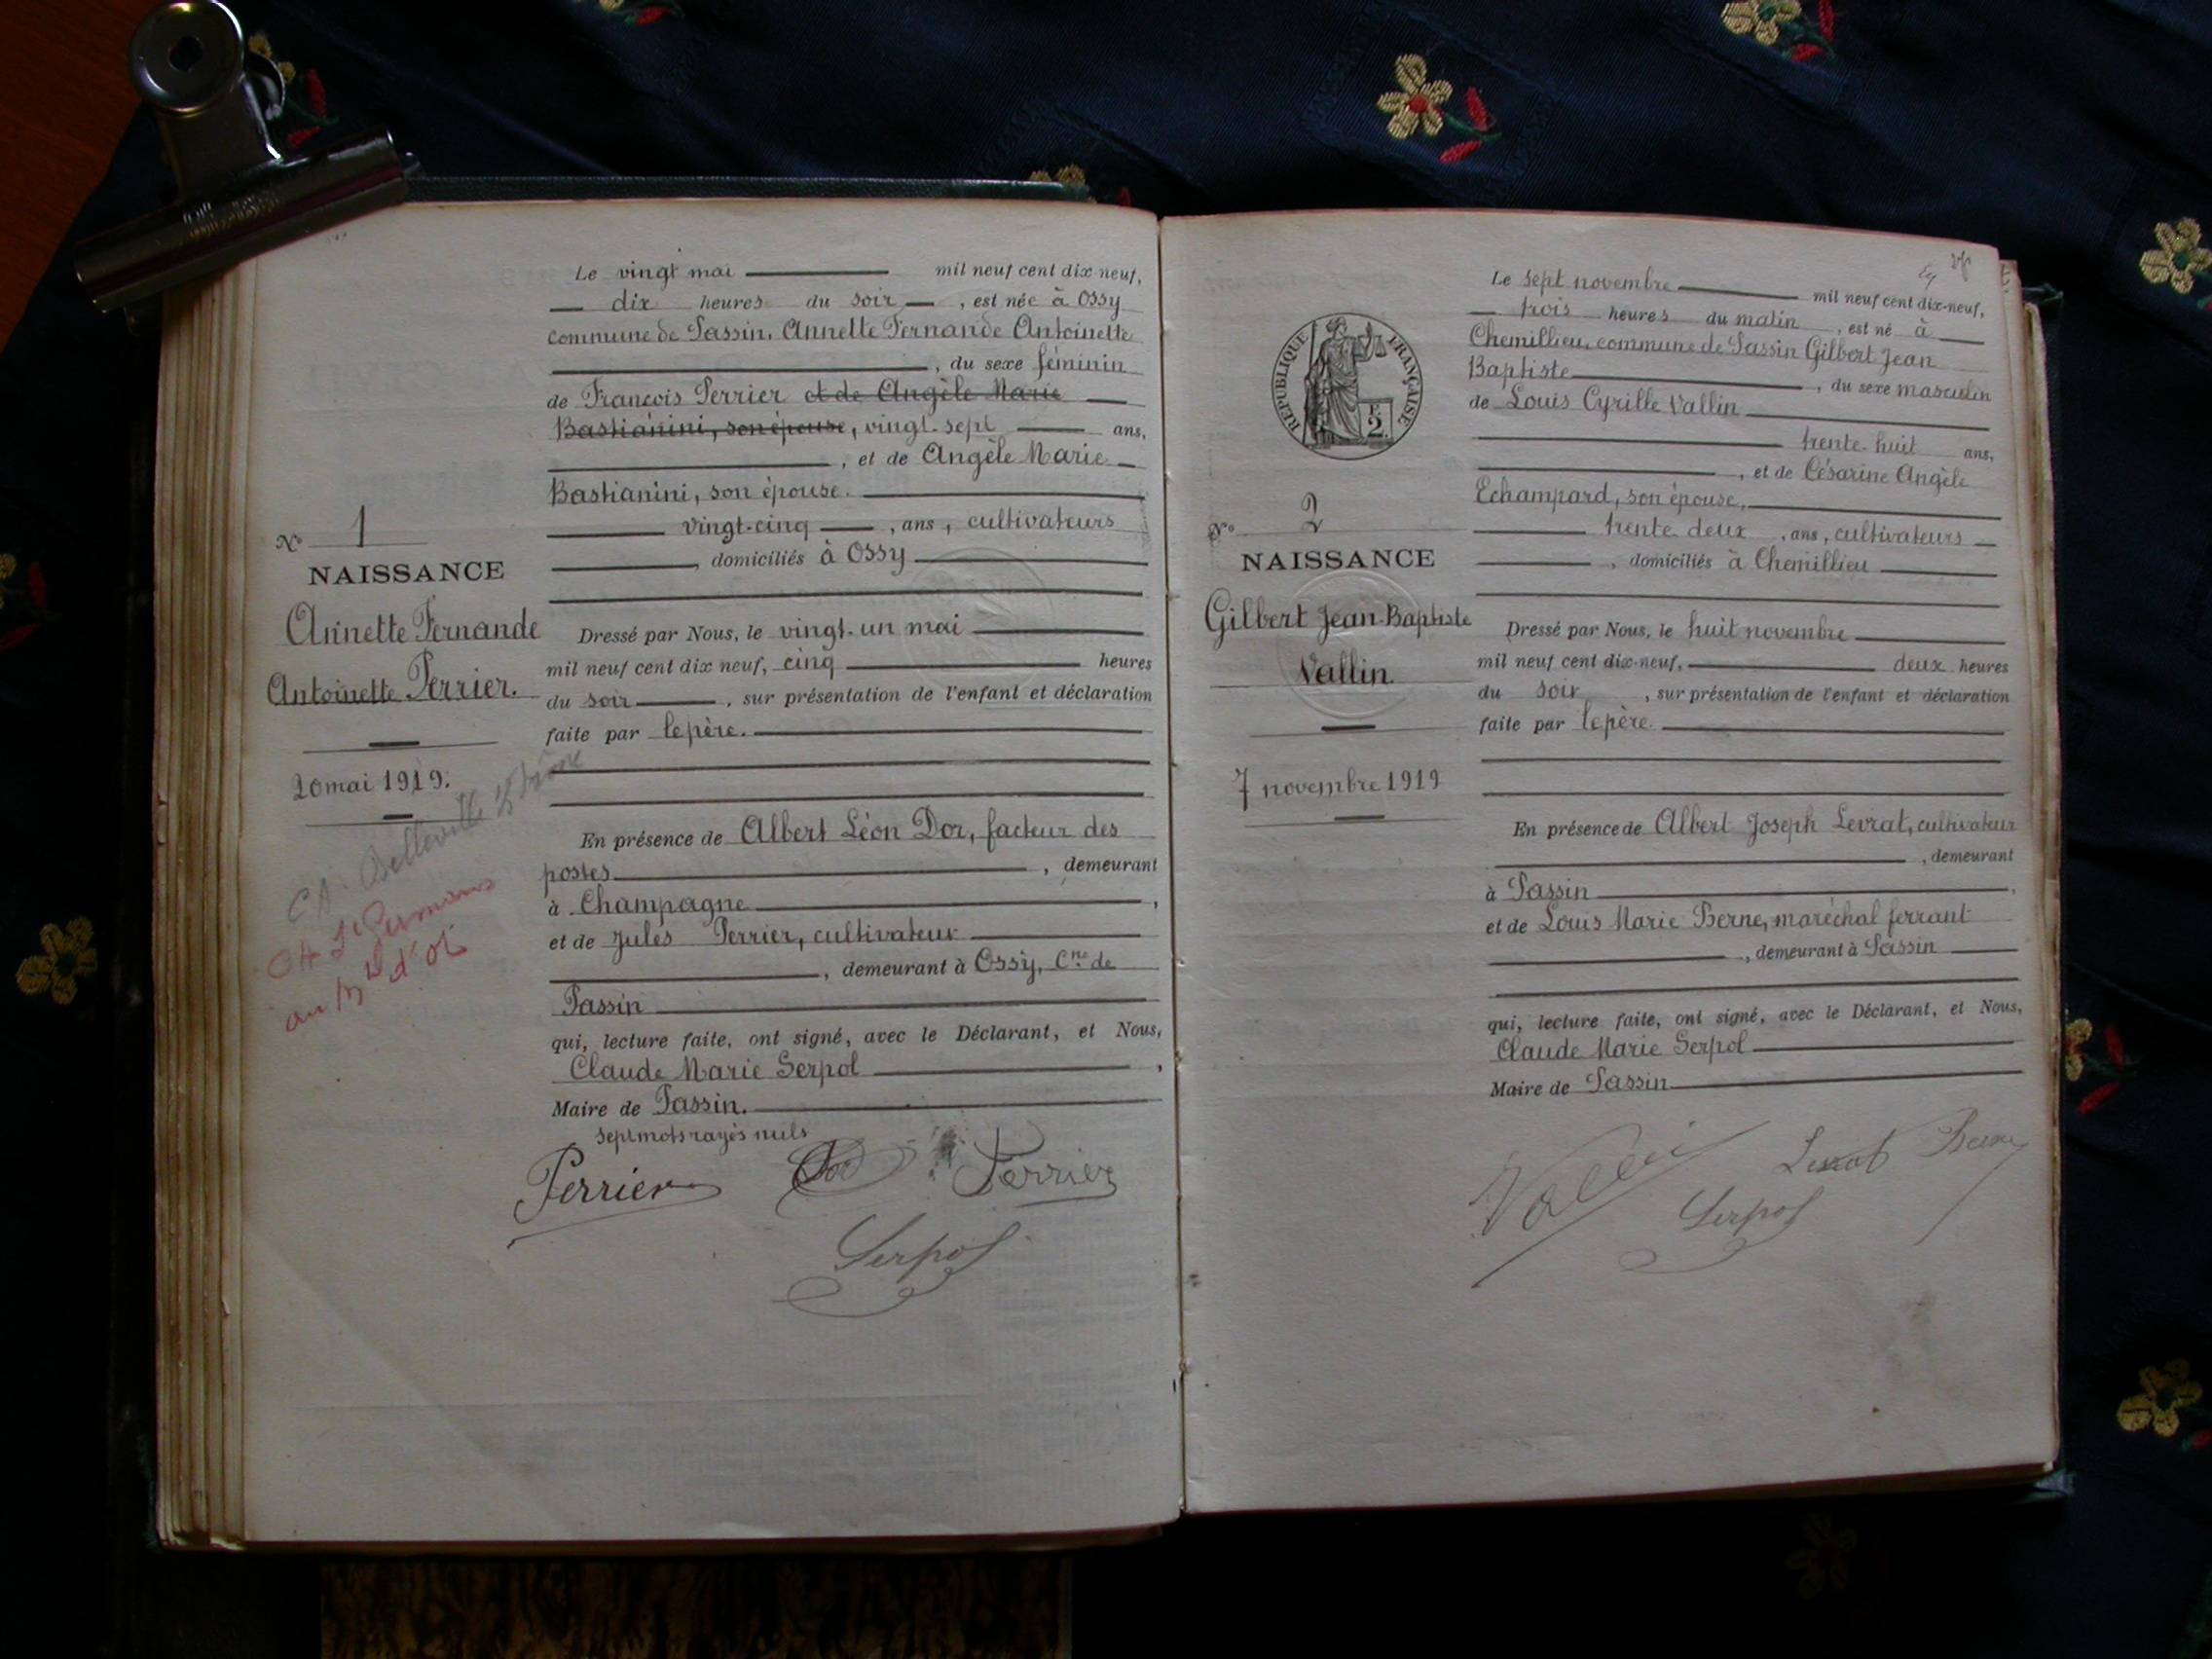 Le vingt mai mil neuf cent dix neuf,
dix heures du soir, est née à Ossy
commune de Passin, Annette Fernande Antoinette
, du sexe féminin
de François Perrier et de Angèle Marie
Bastianini, son épouse, vingt-sept ans,
, et de Angèle Marie
Bastianini, son épouse.
vingt-cinq, ans, cultivateurs
, domiciliés à Ossy
N° 1
NAISSANCE
Annette Fernande
Antoinette Perrier.
20 mai 1919.
Dressé par Nous, le vingt-un mai
mil neuf cent dix neuf, cinq heures
du soir, sur présentation de l'enfant et déclaration
faite par le père.
CA. Belleville
CA St Germain
au Mt d'Or
En présence de Albert Léon Dor, facteur des
postes, demeurant
à Champagne,
et de Jules Perrier, cultivateur
, demeurant à Ossy, Cne de
Passin
qui, lecture faite, ont signé, avec le Déclarant, et Nous,
Claude Marie Serpol,
Maire de Passin.
sept mots rayés nuls
Perrier Dor Perrier
Serpol
Le sept novembre mil neuf cent dix-neuf,
trois heures du matin, est né à
Chemillieu, commune de Passin Gilbert Jean
Baptiste, du sexe masculin
de Louis Cyrille Vallin
trente-huit ans,
, et de Césarine Angèle
Echampard, son épouse,
trente deux, ans, cultivateurs
, domiciliés à Chemillieu
RÉPUBLIQUE FRANÇAISE
2
N° 2
NAISSANCE
Gilbert Jean-Baptiste
Vallin
7 novembre 1919
Dressé par Nous, le huit novembre
mil neuf cent dix-neuf, deux heures
du soir, sur présentation de l'enfant et déclaration
faite par le père.
En présence de Albert Joseph Levrat, cultivateur
, demeurant
à Passin,
et de Louis Marie Berne, maréchal ferrant
, demeurant à Passin
qui, lecture faite, ont signé, avec le Déclarant, et Nous,
Claude Marie Serpol
Maire de Passin
Vallin Levrat Berne
Serpol